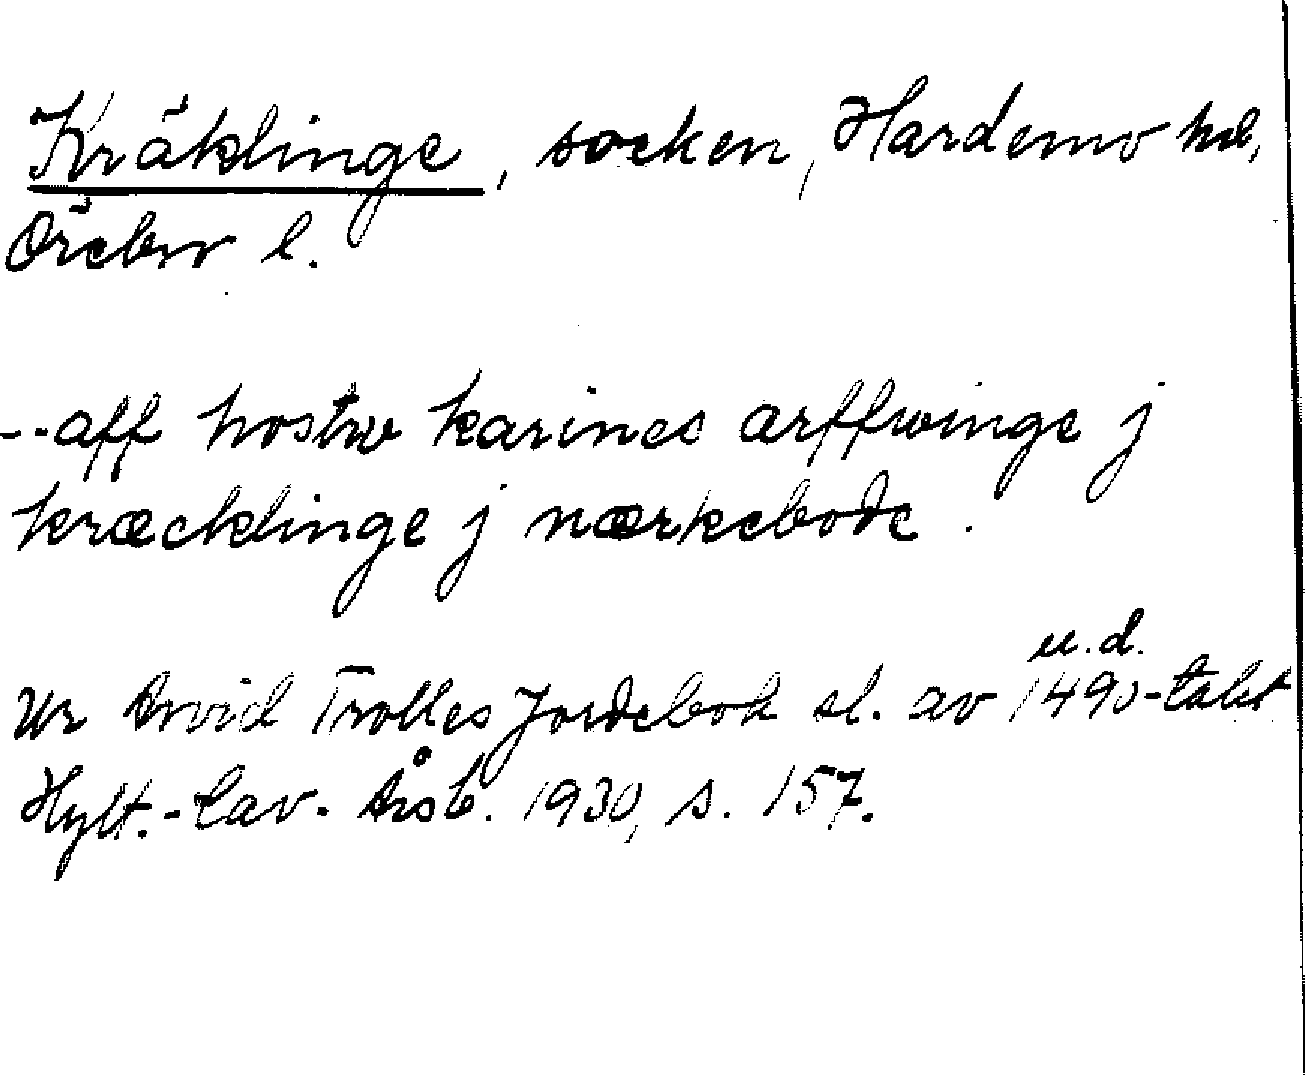 Kräklinge, socken, Hardemo hd,
Örebro l.
--aff hostrv karines arffwinge j
kræcklinge j nærkebode.
u.d.
Ur Arvid Trolles Jordebok sl. av 1490-talet
Hylt.-Cav. Årsb. 1930, s. 157.